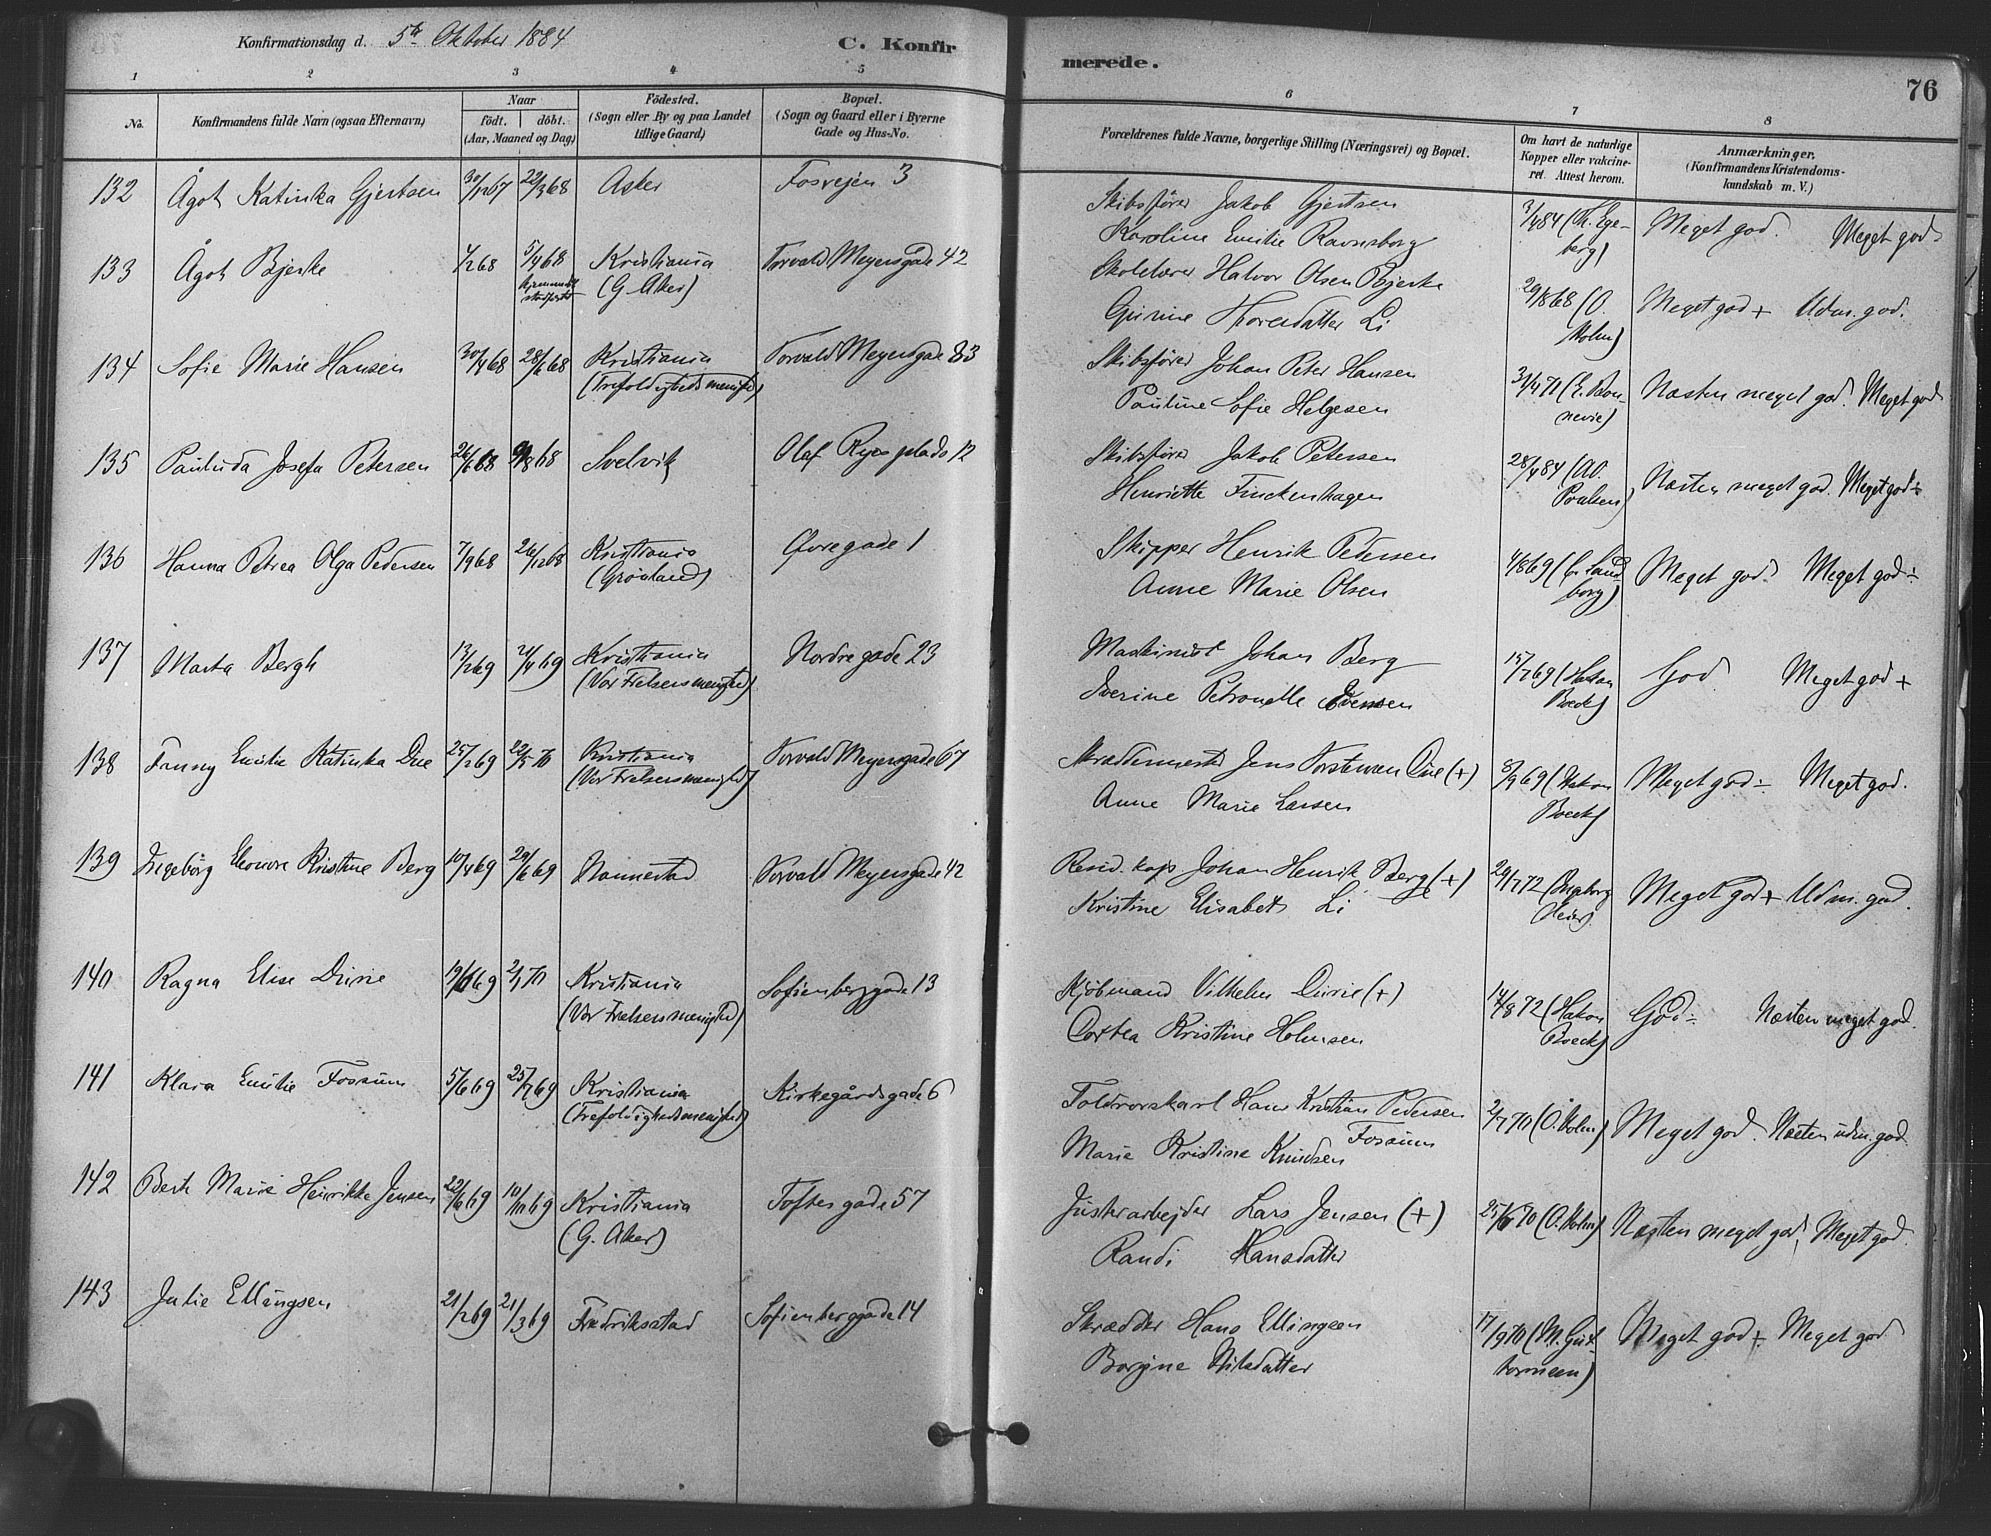 Konfirmationsdag d. 5te Oktober 1884
C. Konfirmerede.
76
1 2 3 4 5 6 7 8
No. Konfirmandens fulde Navn (ogsaa Efternavn) Naar födt. döbt. (Aar, Maaned og Dag) Födested. (Sogn eller By og paa Landet tillige Gaard) Bopæl. (Sogn og Gaard eller i Byerne Gade og Hus-No. Forældrenes fulde Navne, borgerlige Stilling (Næringsvei) og Bopæl. Om havt de naturlige Kopper eller vakcineret. Attest herom. Anmærkninger. (Konfirmandens Kristendomskundskab m. V.)
132 Ågot Katinka Gjertsen 30/12 67 22/3 68 Asker Fosvejen 3 Skibsfører Jakob Gjertsen 3/4 84 (Th. Ege- Meget god. Meget god
Karoline Emilie Ravnsborg berg)
133 Ågot Bjerke 4/2 68 5/4 68 Kristiania Torvald Meyersgade 42 Skolelærer Halvor Olsen Bjerke 29/8 68 (O. Meget god + Udm. god.
(G. Aker) Gurine Thorsdatter Li Holm)
134 Sofie Marie Hansen 30/4 68 28/6 68 Kristiania Torvald Meyersgade 83 Skibsfører Johan Peter Hansen 31/4 71 (E. Bon- Næsten meget god. Meget god
(Trefoldighedsmenighed) Pauline Sofie Helgesen nevie)
135 Paulida Josefa Petersen 26/6 68 9/8 68 Svelvik Olaf Ryes plads 12 Skibsfører Jakob Petersen 28/4 84 (Ad. Næsten meget god. Meget god ÷
Henriette Finckenhagen Paulsen)
136 Hanna Petrea Olga Pedersen 7/9 68 26/12 68 Kristiania Øvregade 1 Skipper Henrik Pedersen 4/8 69 (C. Sand- Meget god. Meget god ÷
(Grønland) Anne Marie Olsen borg)
137 Marta Bergh 13/2 69 2/4 69 Kristiania Nordregade 23 Maskinist Johan Berg 15/7 69 (Hakon God. Meget god +
(Vor Frelsersmenighed) Iverine Petronelle Evensen Boeck)
138 Fanny Emilie Katinka Due 25/2 69 22/5 70 Kristiania Torvald Meyersgade 67 Skræddermester Jens Torstensen Due (+) 8/9 69 (Hakon Meget god ÷ Meget god.
(Vor Frelsersmenighed) Anne Marie Larsen Boeck)
139 Ingeborg Eleonore Kristine Berg 10/4 69 29/6 69 Nannestad Torvald Meyersgade 42 Resid. kap. Johan Henrik Berg (+) 29/7 72 (Ingeborg Meget god + Udm. god.
Kristine Elisabet Li Heier)
140 Ragna Elise Dürie 19/6 69 2/1 70 Kristiania Sofienberggade 13 Kjøbmand Vilhelm Dürie (+) 14/8 72 (Hakon God ÷ Næsten meget god.
(Vor Frelsersmenighed) Dortea Kristine Holmsen Boeck)
141 Klara Emilie Fossum 5/6 69 25/7 69 Kristiania Kirkegårdsgade 6 Toldrorskarl Hans Kristian Pedersen 2/7 70 (O. Holm) Meget god. Næsten udm. god.
(Trefoldighedsmenighed) Fossum
Marie Kristine Knudsen
142 Berte Marie Henrikke Jensen 22/6 69 10/10 69 Kristiania Toftesgade 57 Justerarbejder Lars Jensen (+) 25/6 70 (O. Holm) Næsten meget god, Meget god.
(G. Aker) Randi Hansdatter
143 Julie Ellingsen 21/2 69 21/3 69 Fredriksstad Sofienberggade 14 Skrædder Hans Ellingsen 17/9 70 (M. Gut- Meget god + Meget god
Borgine Nilsdatter tormsen)